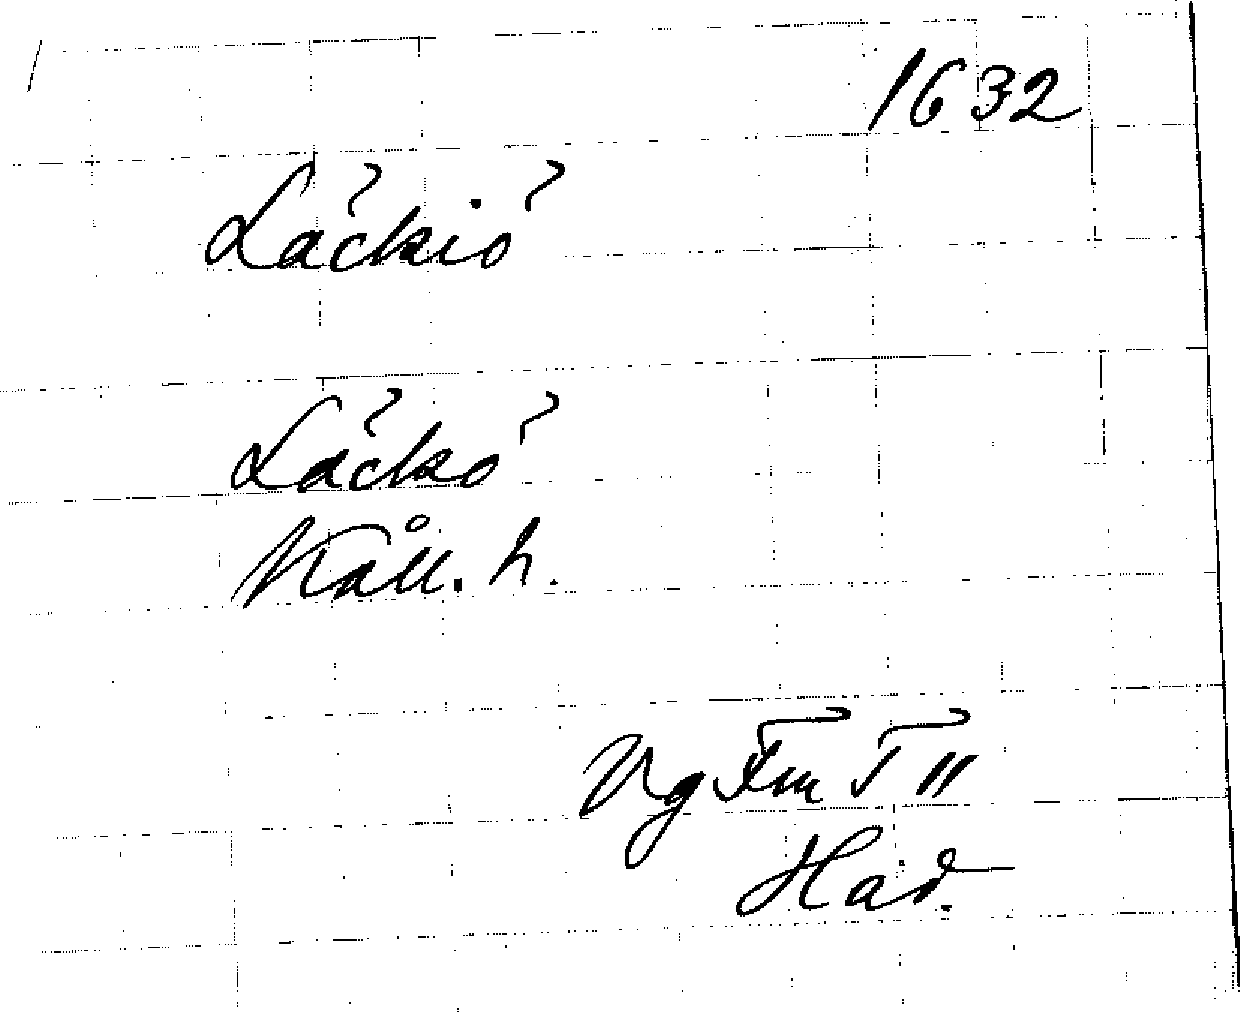 1632
Läckiö
Läckö
Kåll. h.
Vg Fm I 11
Had.